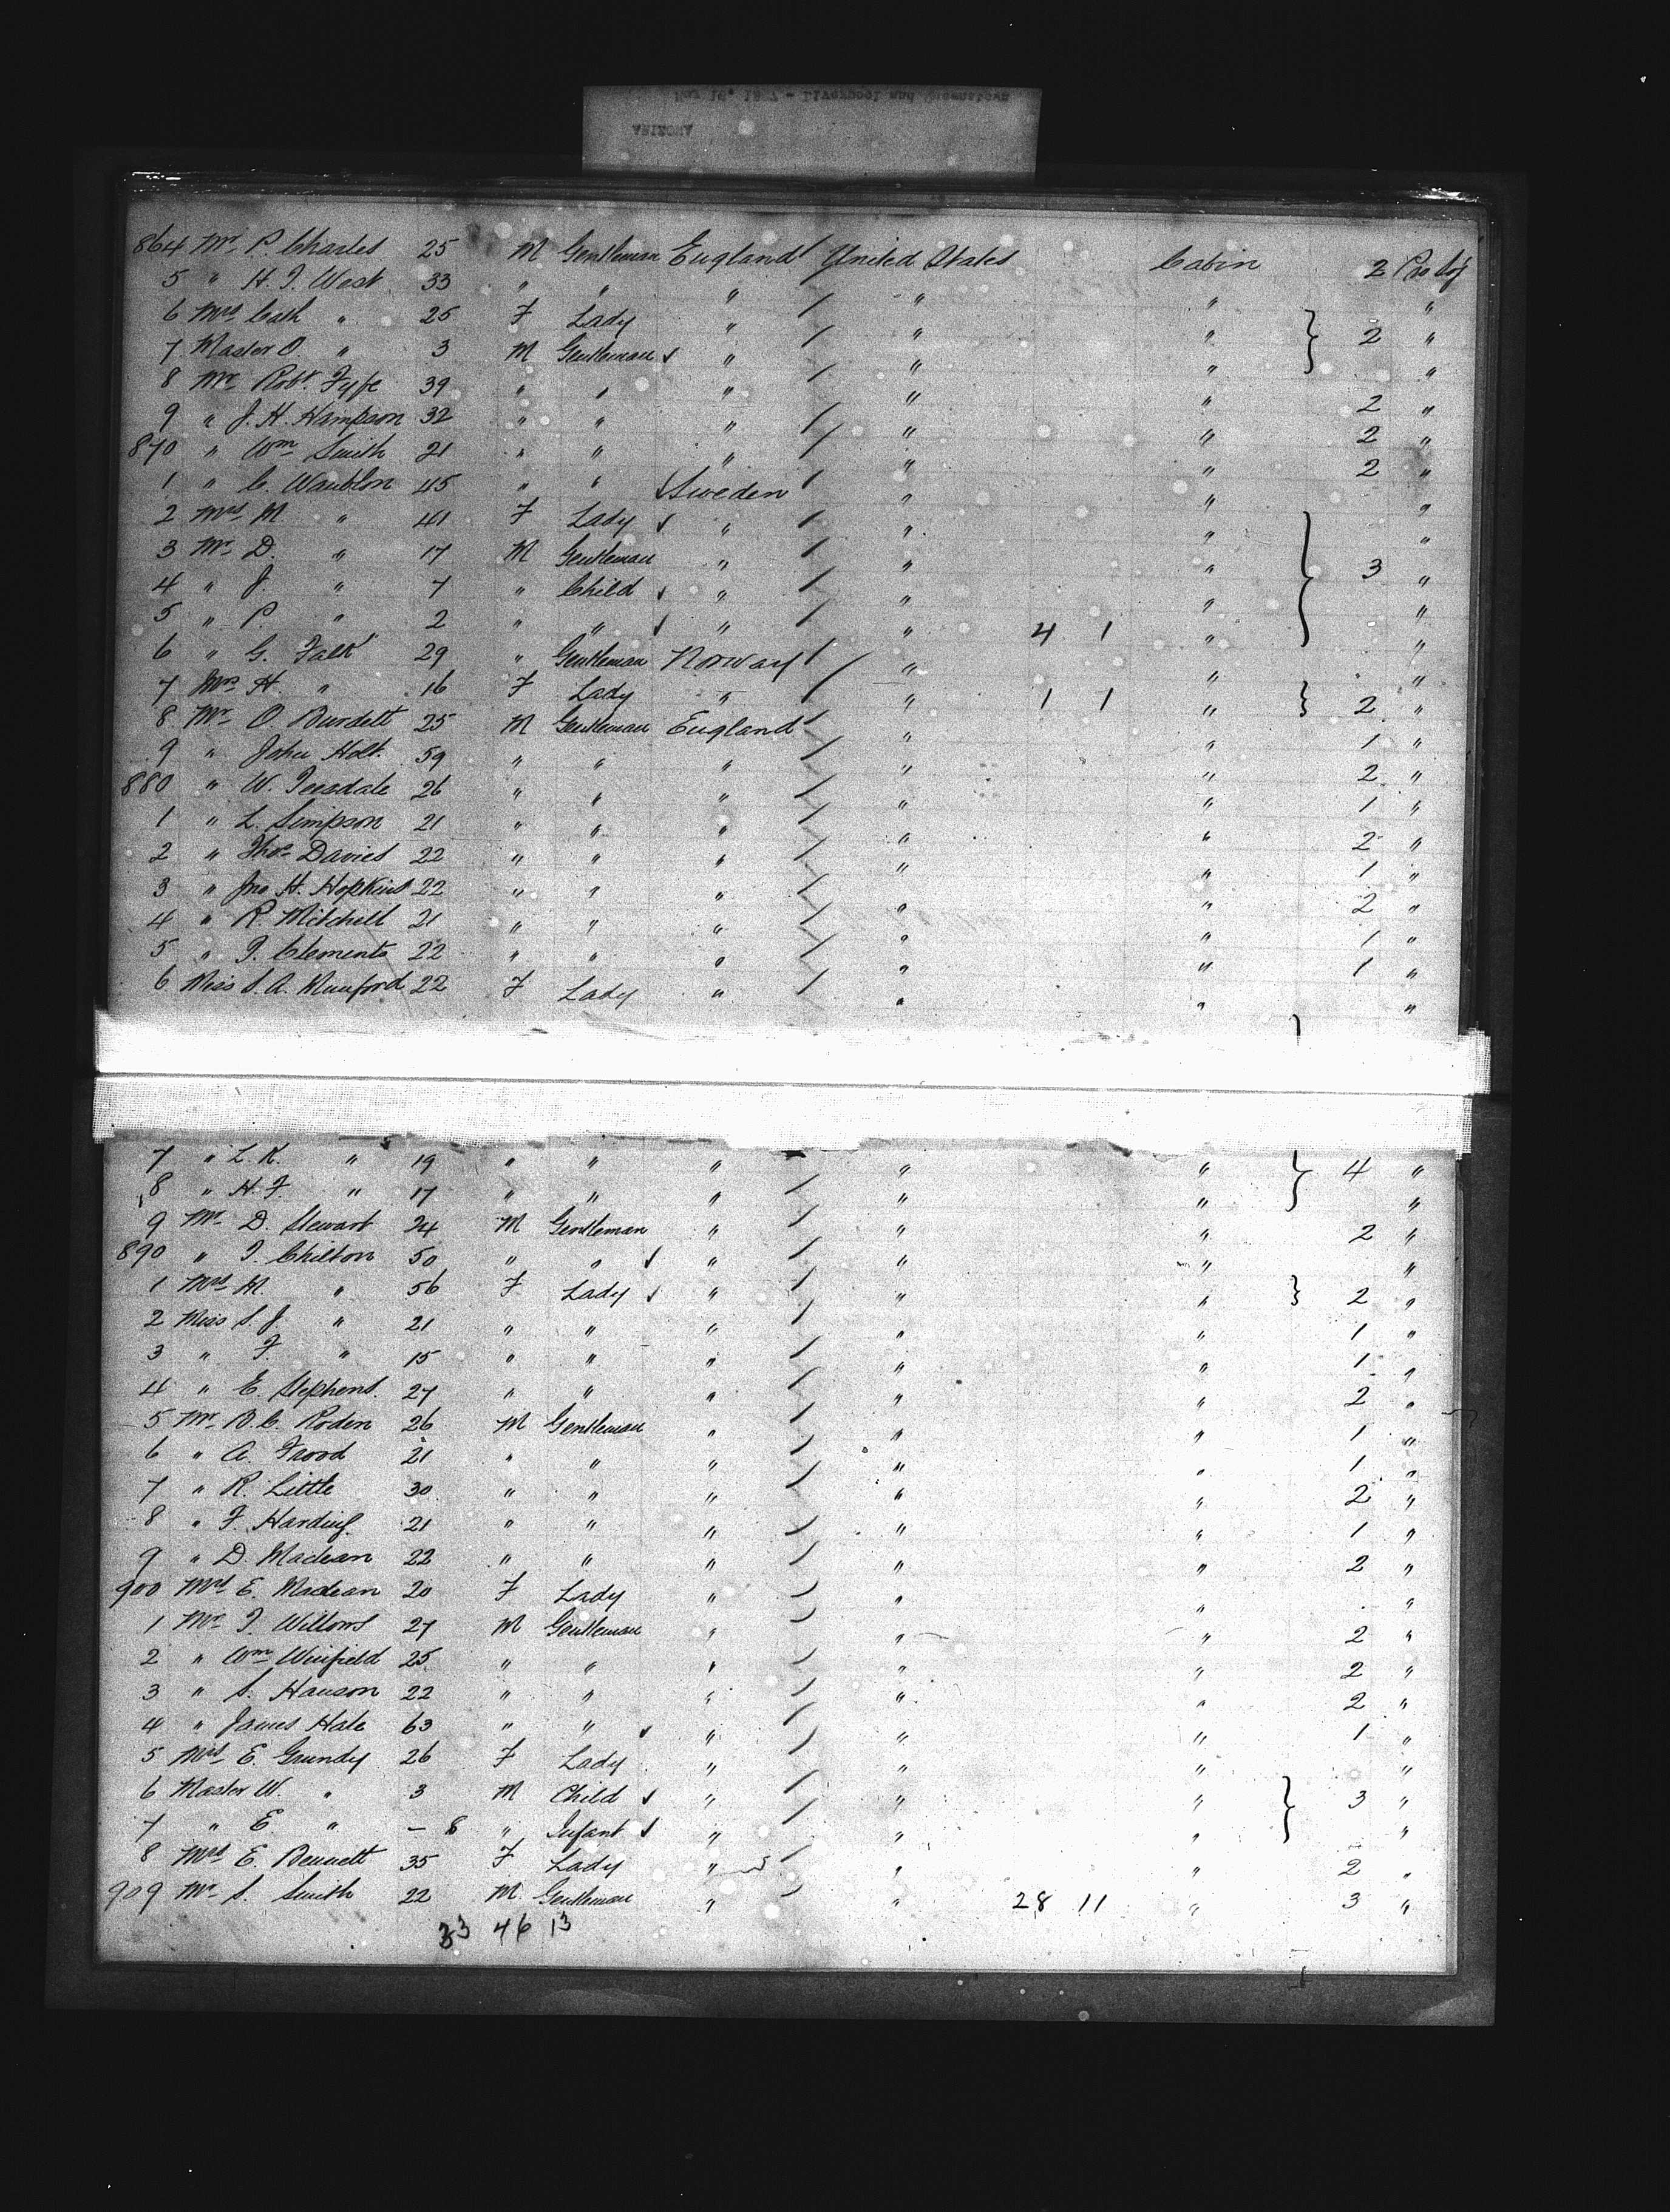 ARIZONA
864 Mr. P. Charles 25 M Gentleman England United States Cabin 2 Pro Soj
5 " H. J. West 33 " " " " " "
6 Mrs Cath " 25 F Lady " " " 2 "
7 Master O. " 3 M Gentleman " " " "
8 Mr Robt. Fyfe 39 " " " " " 2 "
9 " J. H. Hampson 32 " " " " " 2 "
870 " Wm Smith 21 " " " " " 2 "
1 " C. 45 " " Sweden " " "
2 Mrs M. " 41 F Lady " " " "
3 Mr D. " 17 M Gentleman " " " 3 "
4 " J. " 7 " Child " " " "
5 " P. " 2 " " " " 4 1 " "
6 " G. Falk 29 " Gentleman Norway " " "
7 Mrs H. " 16 F Lady " " 1 1 " 2 "
8 Mr O. Burdett 25 M Gentleman England " " 1 "
9 " John Holt. 59 " " " " " 2 "
880 " W. Teesdale 26 " " " " " 1 "
1 " L. Simpson 21 " " " " " 2 "
2 " Thos Davies 22 " " " " " 1 "
3 " Jno H. Hopkins 22 " " " " " 2 "
4 " R. Mitchell 21 " " " " " 1 "
5 " J. Clements 22 " " " " " 1 "
6 Miss S. A. Munford 22 F Lady " " " "
7 " L. K. " 19 " " " " " 4 "
8 " H. F. " 17 " " " " " "
9 Mr D. Stewart 24 M Gentleman " " " 2 "
890 " J. Chilton 50 " " " " " "
1 Mrs M. " 56 F Lady " " " 2 "
2 Miss S. J. " 21 " " " " " 1 "
3 " F. " 15 " " " " " 1 "
4 " E. Stephens. 27 " " " " " 2 "
5 Mr B. C. Roden 26 M Gentleman " " " 1 "
6 " A. Frood 21 " " " " " 1 "
7 " R. Little 30 " " " " " 2 "
8 " F. Harding 21 " " " " " 1 "
9 " D. Maclean 22 " " " " " 2 "
900 Mrs E. Maclean 20 F Lady " " " "
1 Mr J. Willows 27 M Gentleman " " " 2 "
2 " Wm Winfield 25 " " " " " 2 "
3 " S. Hanson 22 " " " " " 2 "
4 " James Hale 63 " " " " " 1 "
5 Mrs E. Grundy 26 F Lady " " " "
6 Master W. " 3 M Child " " " 3 "
7 " E. " - 8 " Infant " " " "
8 Mrs E. Bennett 35 F Lady " " " 2 "
909 Mr S. Smith 22 M Gentleman " " 28 11 " 3 "
33 46 13